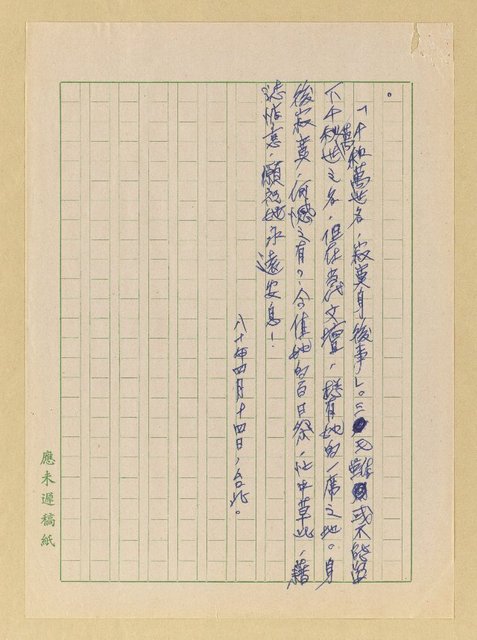 。
「千秋萬世名，寂寞身後事」。三毛雖或不能留
下千秋萬世之名，但在當代文壇，應有她的一席之地。身
後寂寞，何憾之有？今值她的百日祭，忙中草此，藉
誌悼意，願祝她永遠安息！
八十年四月十四日，台北。
應未遲稿紙